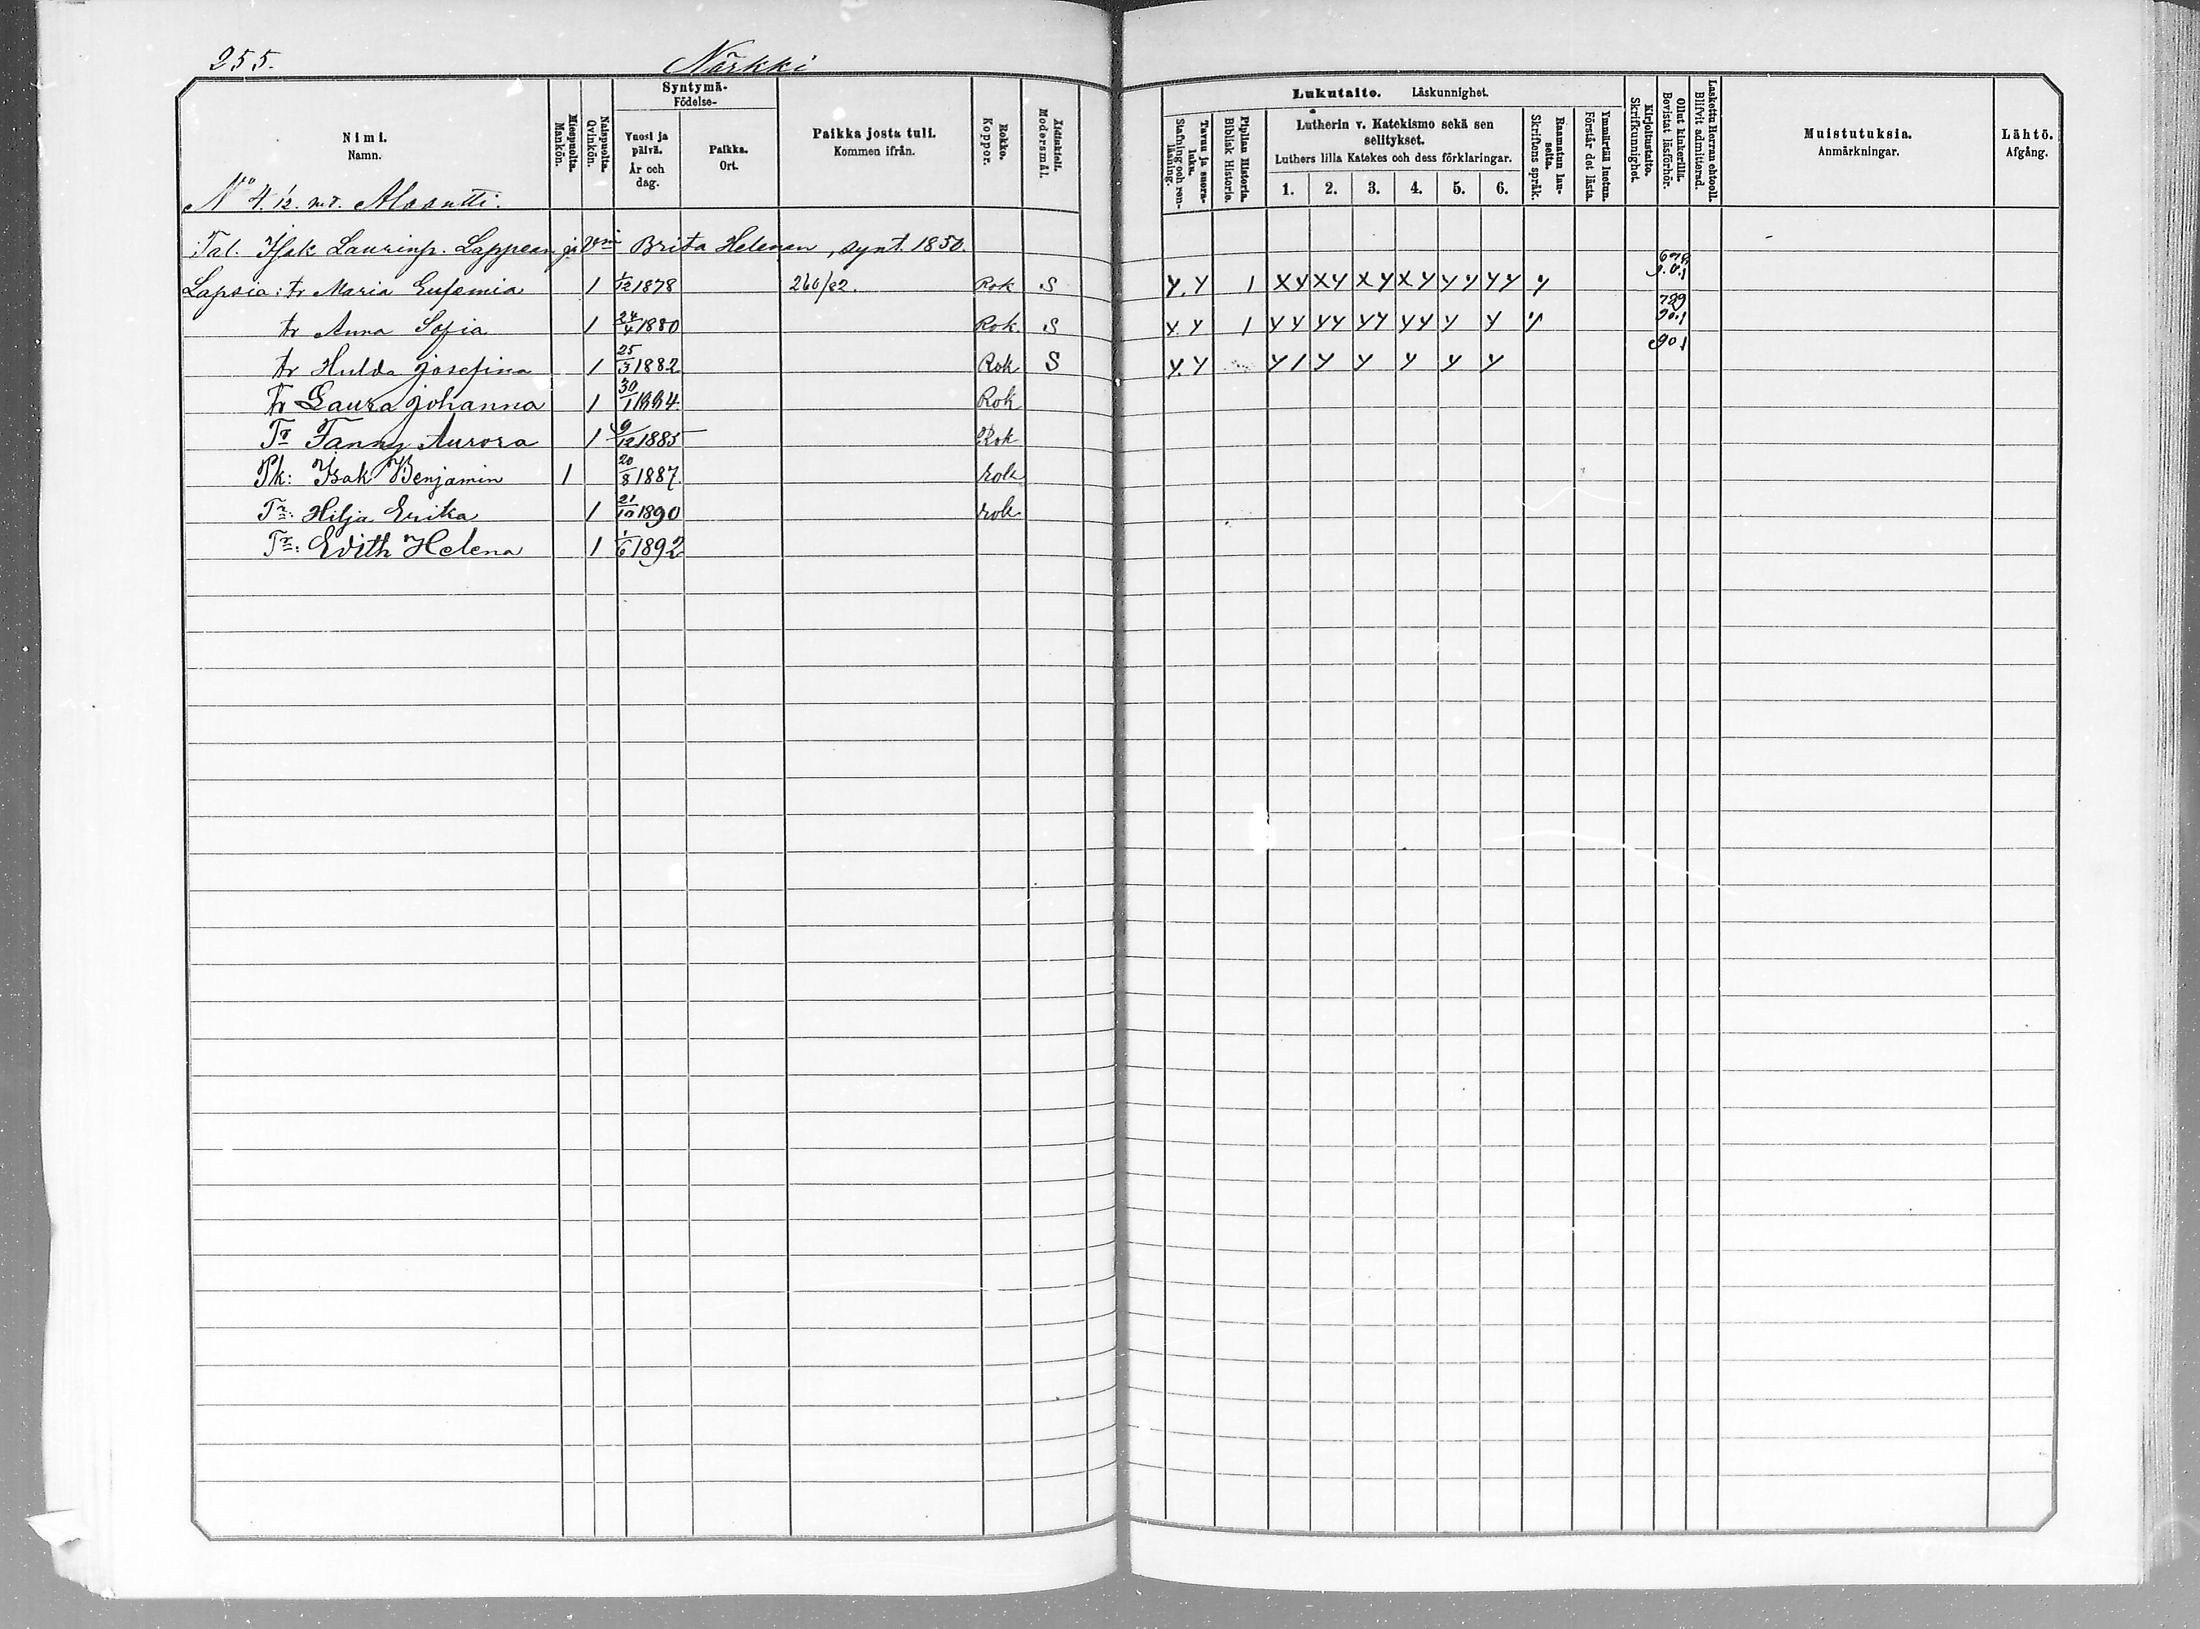 255.
Närkki
Nimi.
Namn.
Miespuolta.
Mankön.
Naispuolta.
Qvinkön.
Syntymä-
Födelse-
Vuosi ja päivä.
År och dag.
Paikka.
Ort.
Paikka josta tuli.
Kommen ifrån.
Rokko.
Koppor.
Äidinkieli.
Modersmål.
Lukutaito. Läskunnighet.
Tavuu ja suora-luku.
Stafning och ren-läsning.
Piplian Historia.
Biblisk Historie.
Lutherin v. Katekismo sekä sen selitykset.
Luthers lilla Katekes och dess förklaringar.
1. 2. 3. 4. 5. 6.
Raamatun lau-seita.
Skriftens språk.
Ymmärtää luetun.
Förstår det lästa.
Kirjoitustaito.
Skrifkunnighet.
Ollut kinkerillä.
Bevistat läsförhör.
Laskettu Herran ehtooll.
Blifvit admitterad.
Muistutuksia.
Anmärkningar.
Lähtö.
Afgång.
No 4. 1/2. m.
Tal. Isak Laurinp. Lappean ja Vmn Brita Helenan, synt. 1850.
Lapsia: tr Maria Eufemia 1 1/12 1878 260/82. Rok S y. y 1 xy xy xy xy yy yy y
tr Anna Sofia 1 24/4 1880 Rok S y. y 1 yy yy yy yy y y y 789 90.1
tr Hulda Josefina 1 25/3 1882 Rok S y. y y1 y y y y y 901
Tr Laura Johanna 1 30/1 1884. Rok
Tr Fanny Aurora 1 9/12 1885 Rok
Pk: Isak Benjamin 1 20/8 1887. rok
Tr: Hilja Erika 1 21/10 1890 rok
Tr: Edith Helena 1 1/6 1892